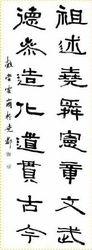 祖述堯舜憲章文武
德叅造化道貫古今